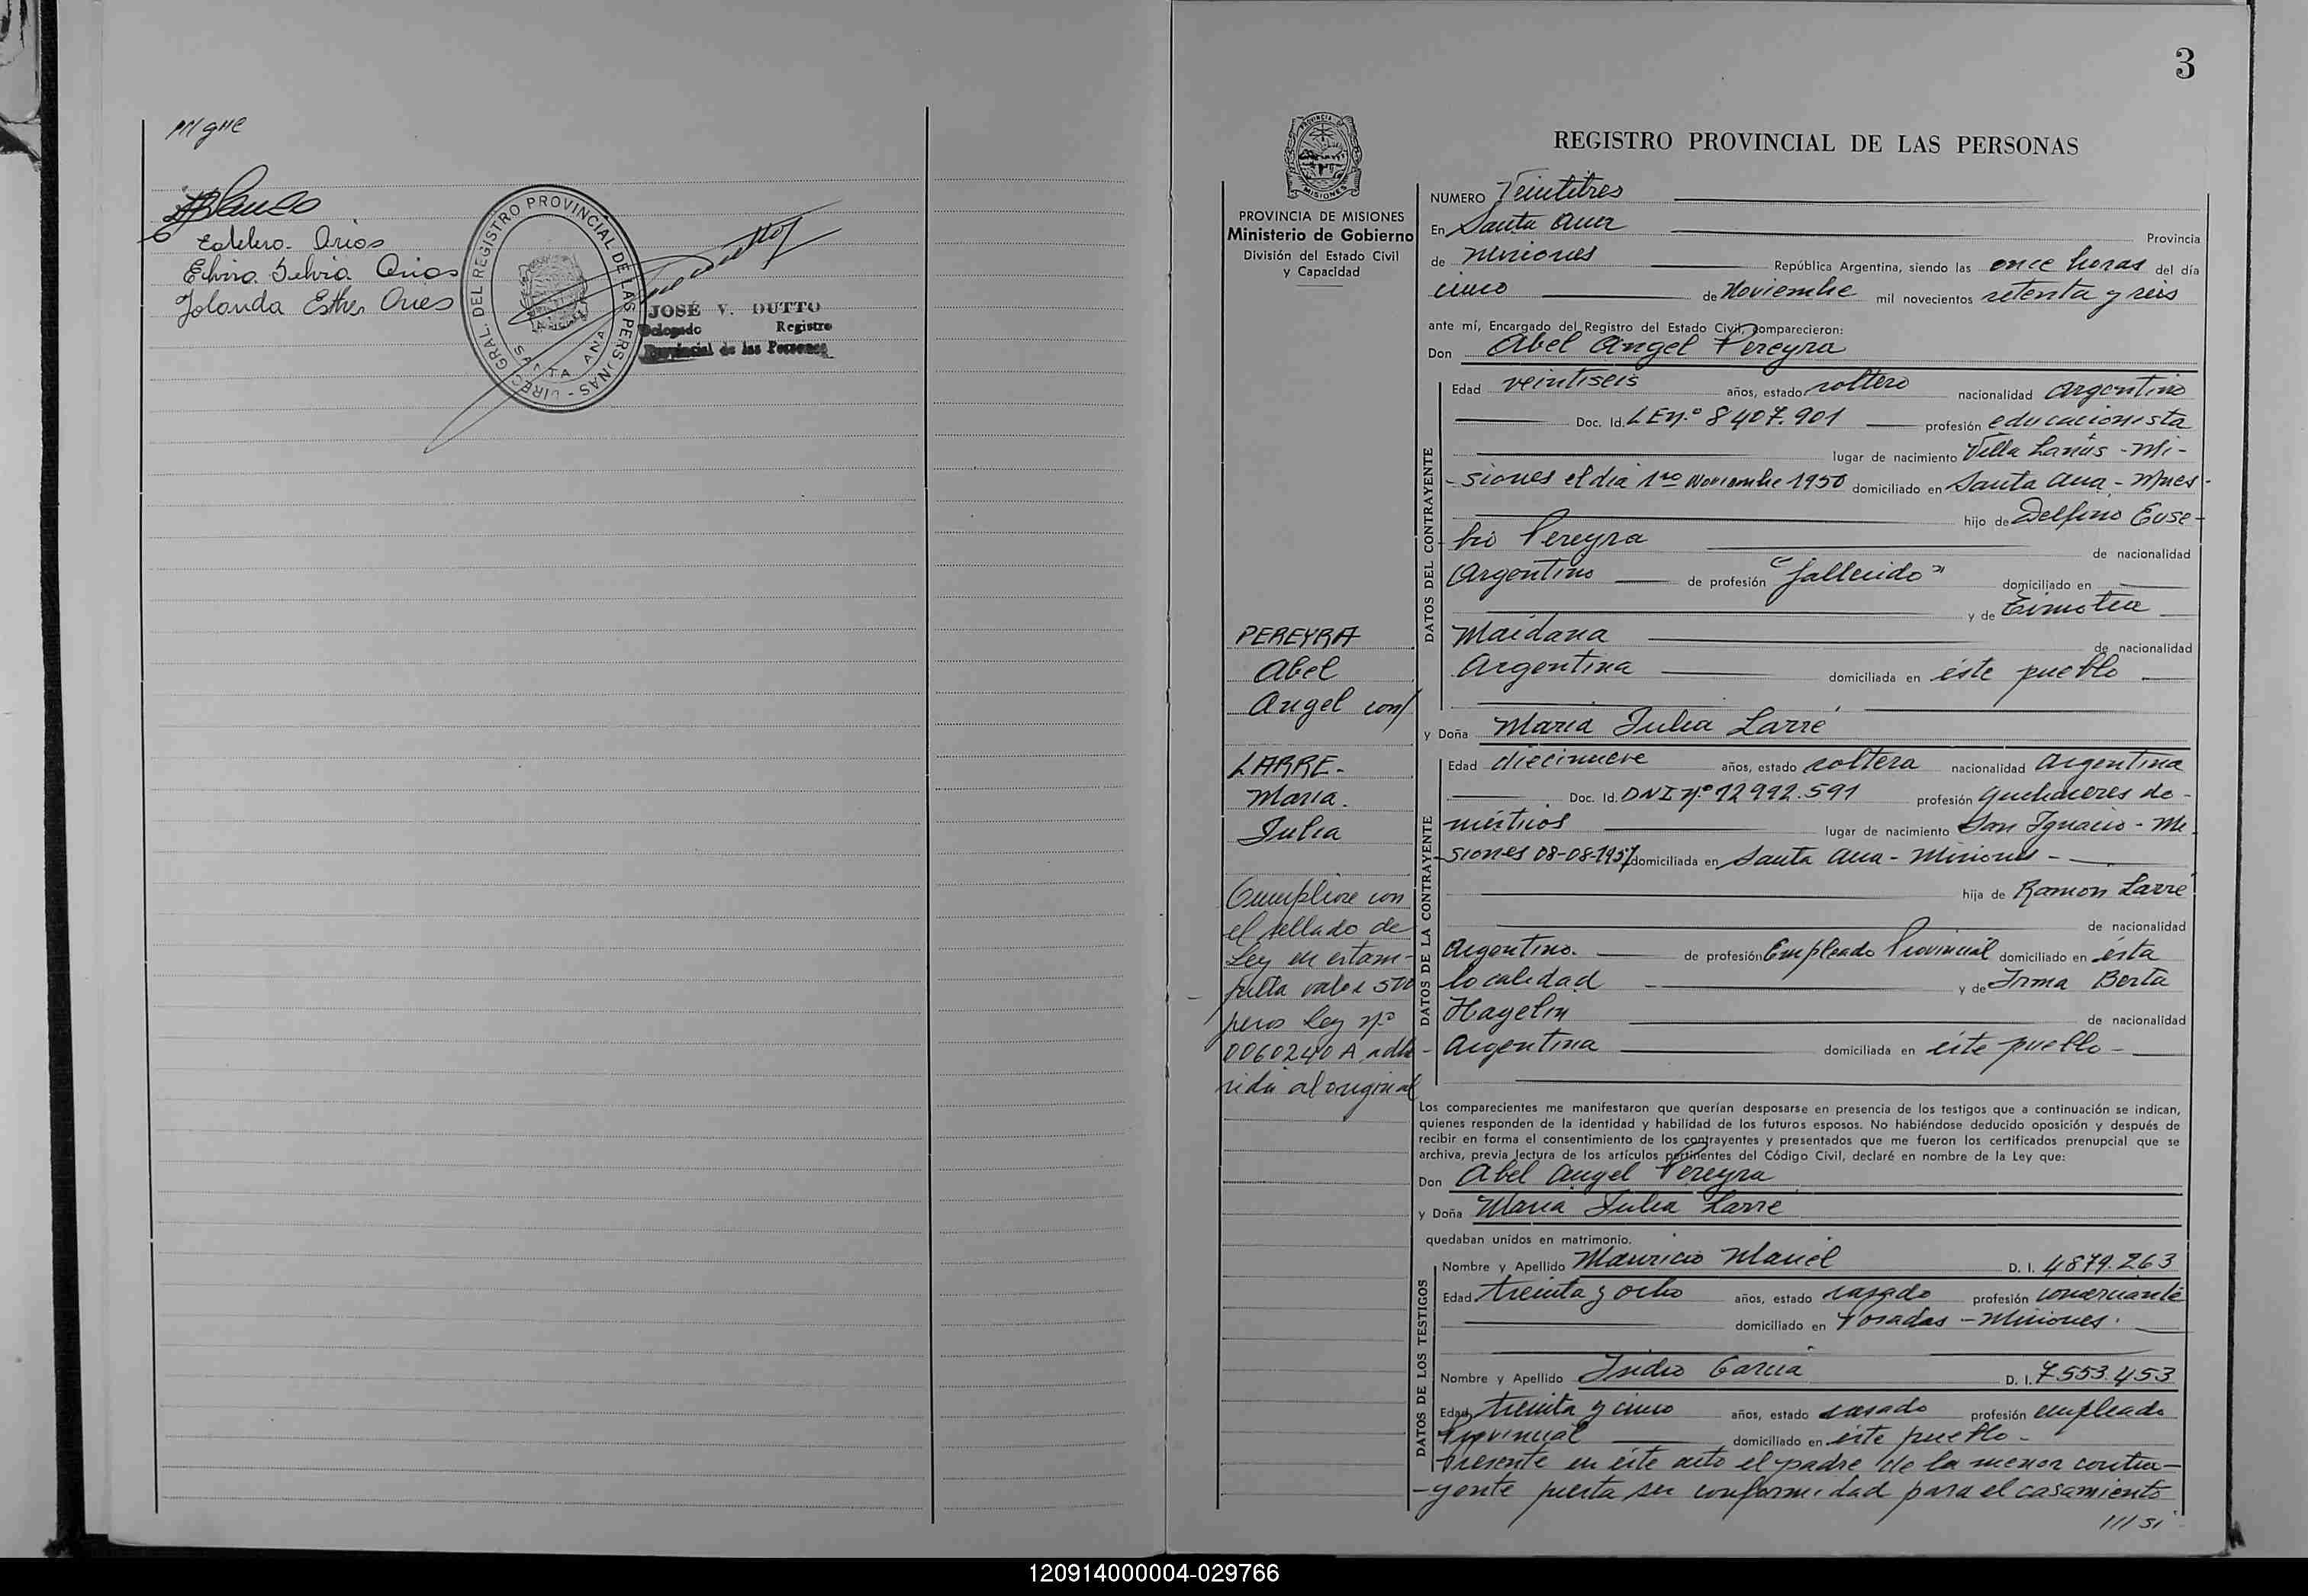 Blanco
Arios
Elvira Silvia Arios
Jolanda Esther Aries
DIREC. GRAL. DEL REGISTRO PROVINCIAL DE LAS PERSONAS -
SANTA ANA
JOSÉ V. DUTTO
Delegado Registro
Provincial de las Personas
3
PROVINCIA DE MISIONES
PROVINCIA DE MISIONES
Ministerio de Gobierno
División del Estado Civil
y Capacidad
REGISTRO PROVINCIAL DE LAS PERSONAS
NUMERO Veintitres
En Santa Ana Provincia
de Misiones República Argentina, siendo las once horas del día
cinco de Noviembre mil novecientos setenta y seis
ante mí, Encargado del Registro del Estado Civil, comparecieron:
Don Abel Angel Pereyra
DATOS DEL CONTRAYENTE
Edad veintiseis años, estado soltero nacionalidad argentino
Doc. Id. LE Nº 8407.901 profesión educacionista
lugar de nacimiento Villa Lanús - Mi-
- siones el dia 1ro Noviembre 1950 domiciliado en Santa Ana - Mnes -
hijo de Delfino Euse-
bio Pereyra de nacionalidad
Argentino de profesión "fallecido" domiciliado en
y de Timotea
Maidana de nacionalidad
Argentina domiciliada en éste pueblo
y Doña Maria Julia Larré
DATOS DE LA CONTRAYENTE
Edad diecinueve años, estado soltera nacionalidad argentina
Doc. Id. DNI Nº 12992.591 profesión quehaceres do-
mésticos lugar de nacimiento San Ignacio - Mi
- siones 08-08-1957 domiciliada en Santa Ana - Misiones -
hija de Ramon Larré
de nacionalidad
Argentino. de profesión Empleado Provincial domiciliado en ésta
localidad y de Irma Berta
Hagelin de nacionalidad
Argentina domiciliada en éste pueblo -
PEREYRA
Abel
Angel con/
LARRE -
Maria.
Julia
Cumplióse con
el sellado de
Ley en estam-
pilla valor 500
pesos Ley nº
0060240 A adhe-
rida al original
Los comparecientes me manifestaron que querían desposarse en presencia de los testigos que a continuación se indican,
quienes responden de la identidad y habilidad de los futuros esposos. No habiéndose deducido oposición y después de
recibir en forma el consentimiento de los contrayentes y presentados que me fueron los certificados prenupcial que se
archiva, previa lectura de los artículos pertinentes del Código Civil, declaré en nombre de la Ley que:
Don Abel Angel Pereyra
y Doña Maria Julia Larre
quedaban unidos en matrimonio.
DATOS DE LOS TESTIGOS
Nombre y Apellido Mauricio D. I. 4879.263
Edad treinta y ocho años, estado casado profesión comerciante
domiciliado en Posadas - Misiones.
Nombre y Apellido Isidro Garcia D. I. 7.553.453
Edad treinta y cinco años, estado casado profesión empleado
Provincial domiciliado en éste pueblo -
Presente en éste acto el padre de la menor contra-
- yente presta su conformidad para el casamiento
///si
120914000004-029766